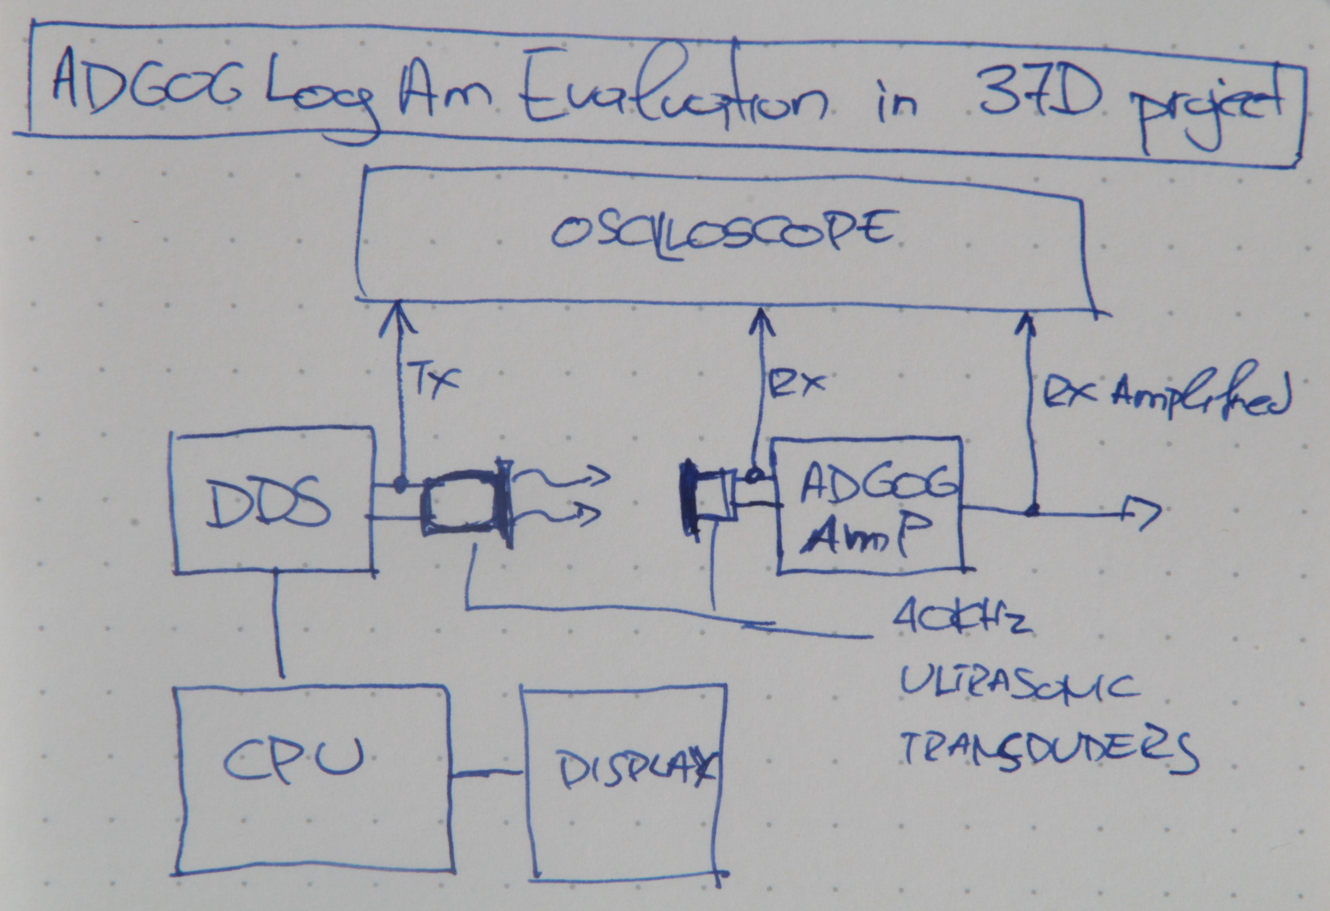 AD606 Log Am Evaluation in 37D project
OSCILLOSCOPE
Tx
Rx
Rx Amplified
DDS
AD606
AmP
40kHz
ULTRASONIC
TRANSDUDERS
CPU
DISPLAY